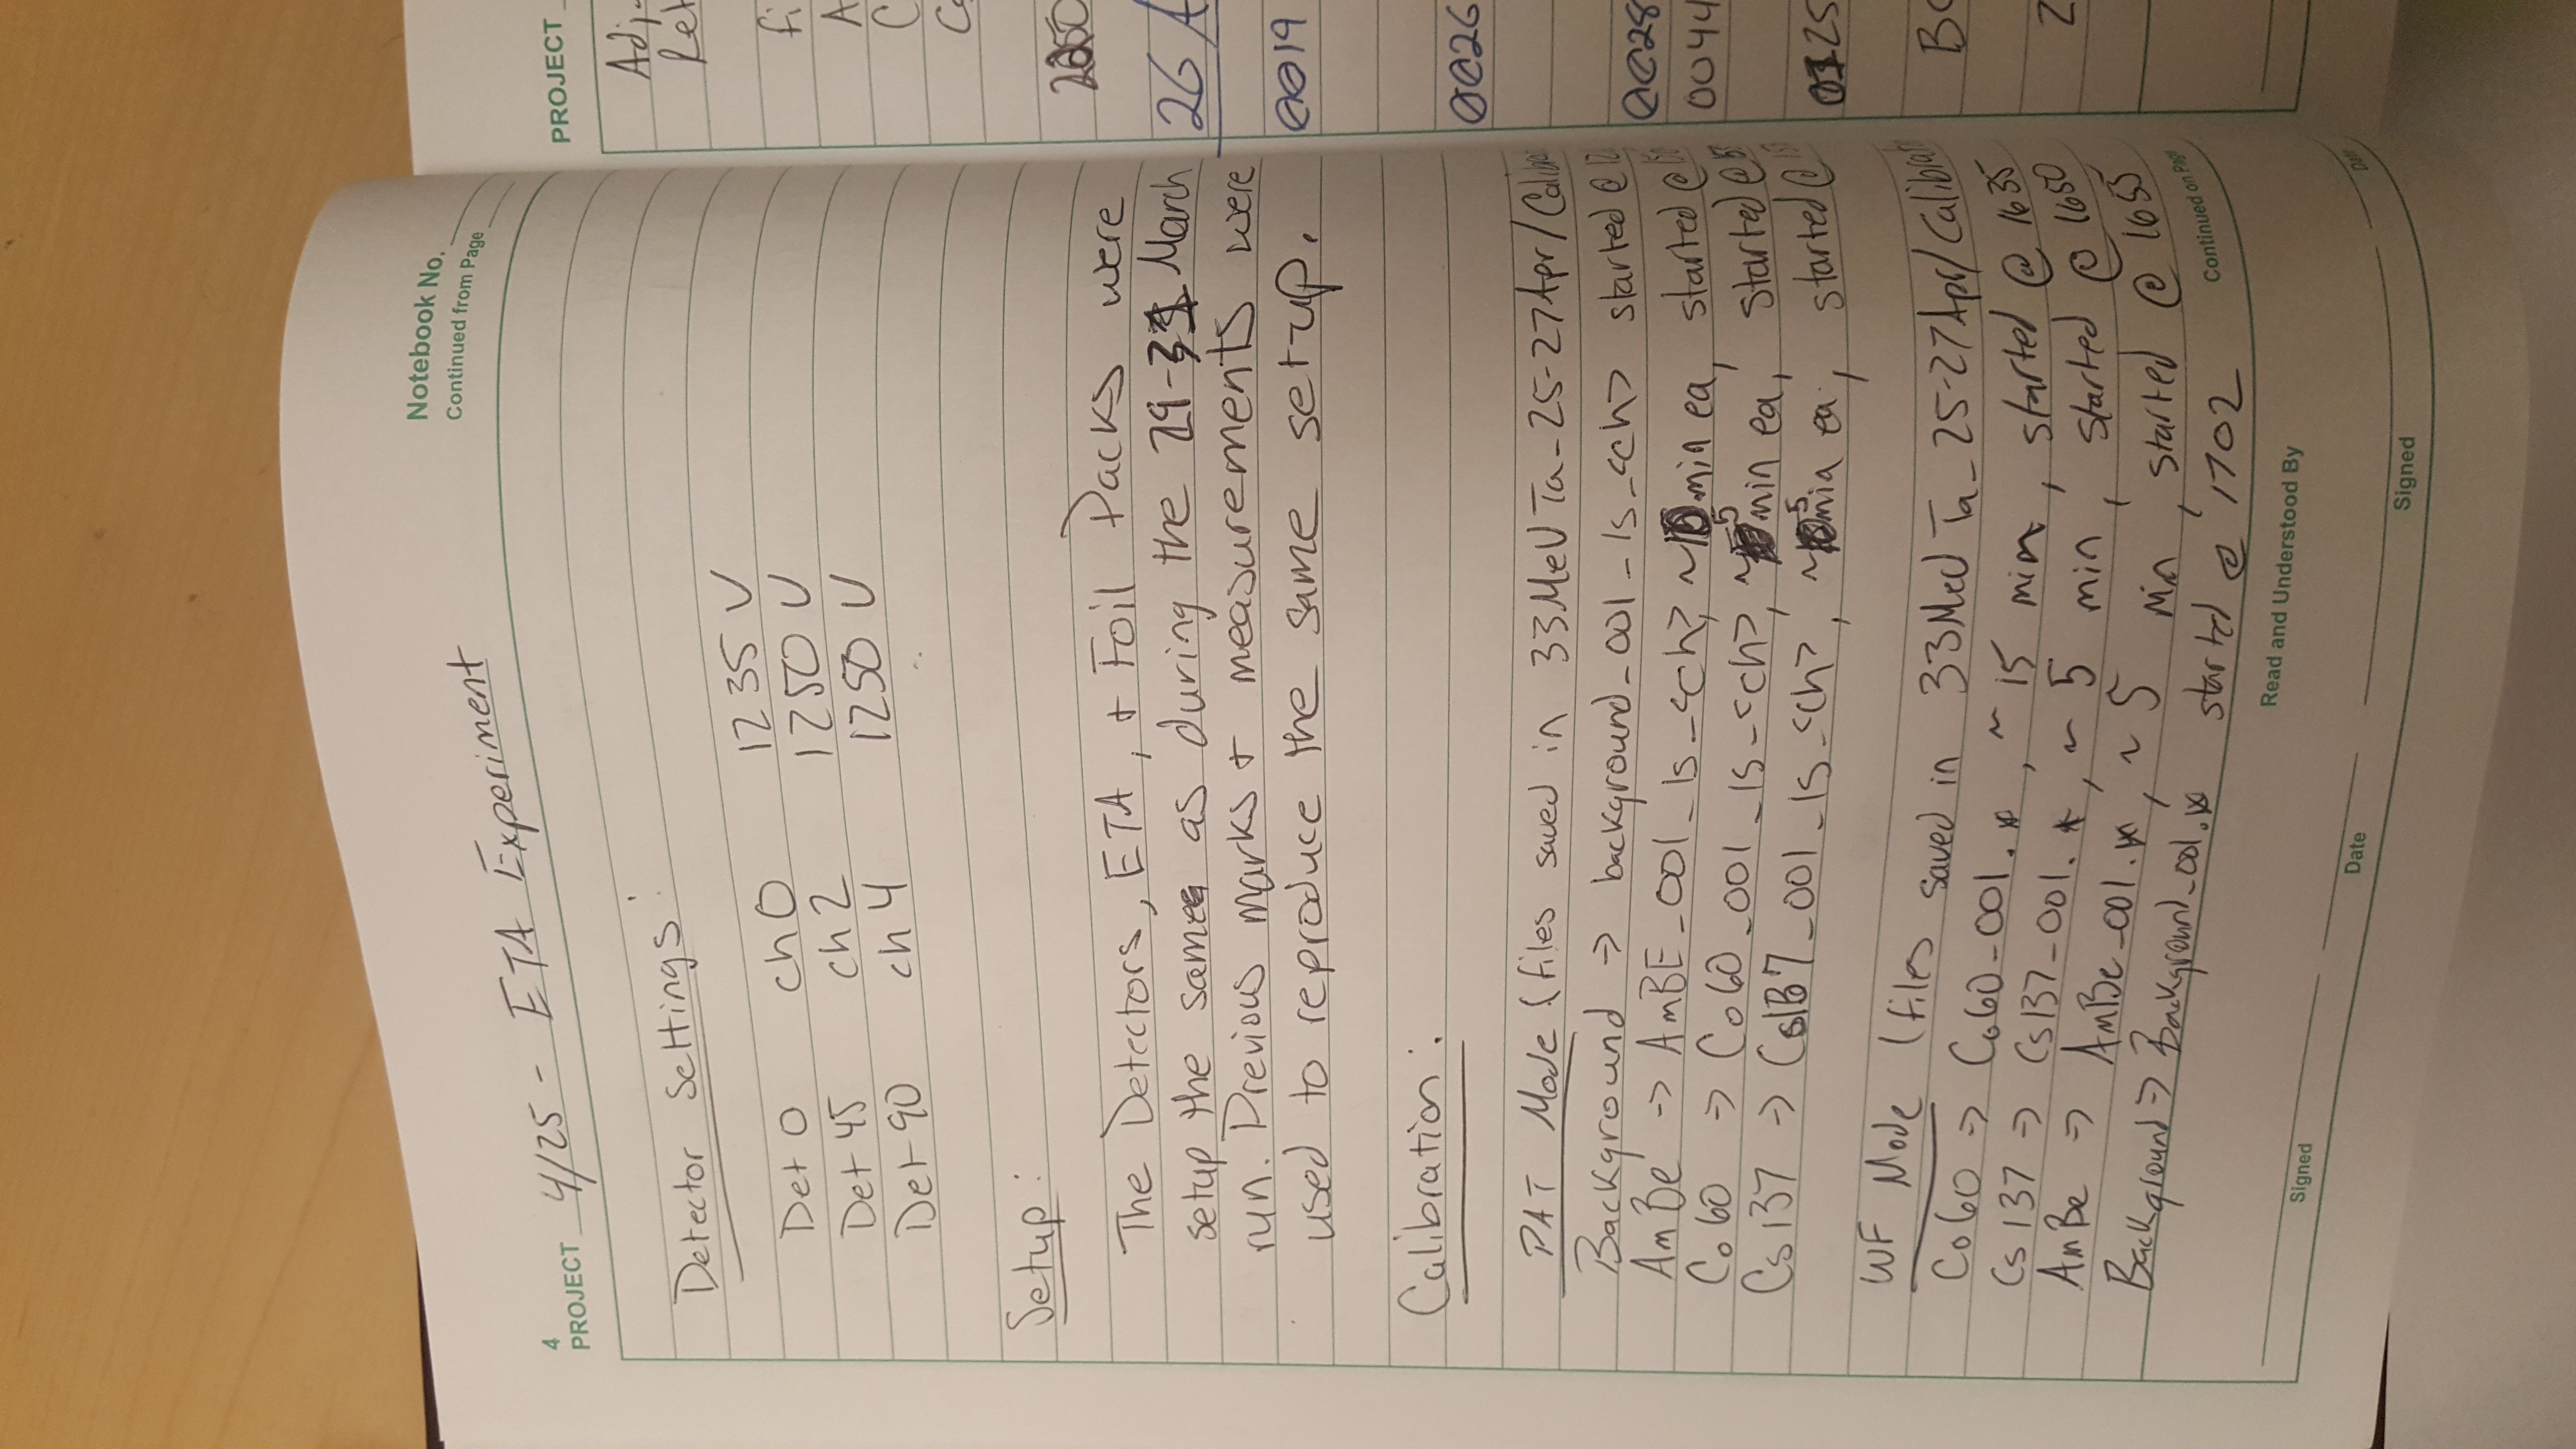 Notebook No.
Continued from Page
4
PROJECT 4/25 - ETA Experiment
Detector Settings:
Det 0 ch 0 1235 V
Det 45 ch 2 1250 V
Det 90 ch 4 1250 V
Setup:
The Detectors, ETA, + Foil Packs were
setup the same as during the 29-31 March
run. Previous marks + measurements were
used to reproduce the same set-up.
Calibration:
PAT Mode (files saved in 33MeVTa_25-27Apr/
Background → background_001_ls_<ch> started @
AmBe → AmBE_001_ls_<ch>, ~10 min ea, started @
Co60 → Co60_001_ls_<ch>, ~5 min ea, started @
Cs137 → Cs137_001_ls_<ch>, ~5 min ea, started @
WF Mode (files saved in 33MeV Ta_25-27Apr/
Co60 → Co60_001.*, ~ 15 min, started @ 1635
Cs137 → Cs137_001.*, ~ 5 min, started @ 1650
AmBe → AmBe_001.*, ~ 5 min, started @ 1655
Background → Background_001.* started @ 1702
Continued on Page
Read and Understood By
Signed
Date
Signed
Date
PROJECT
26
0019
0026
0028
0044
0125